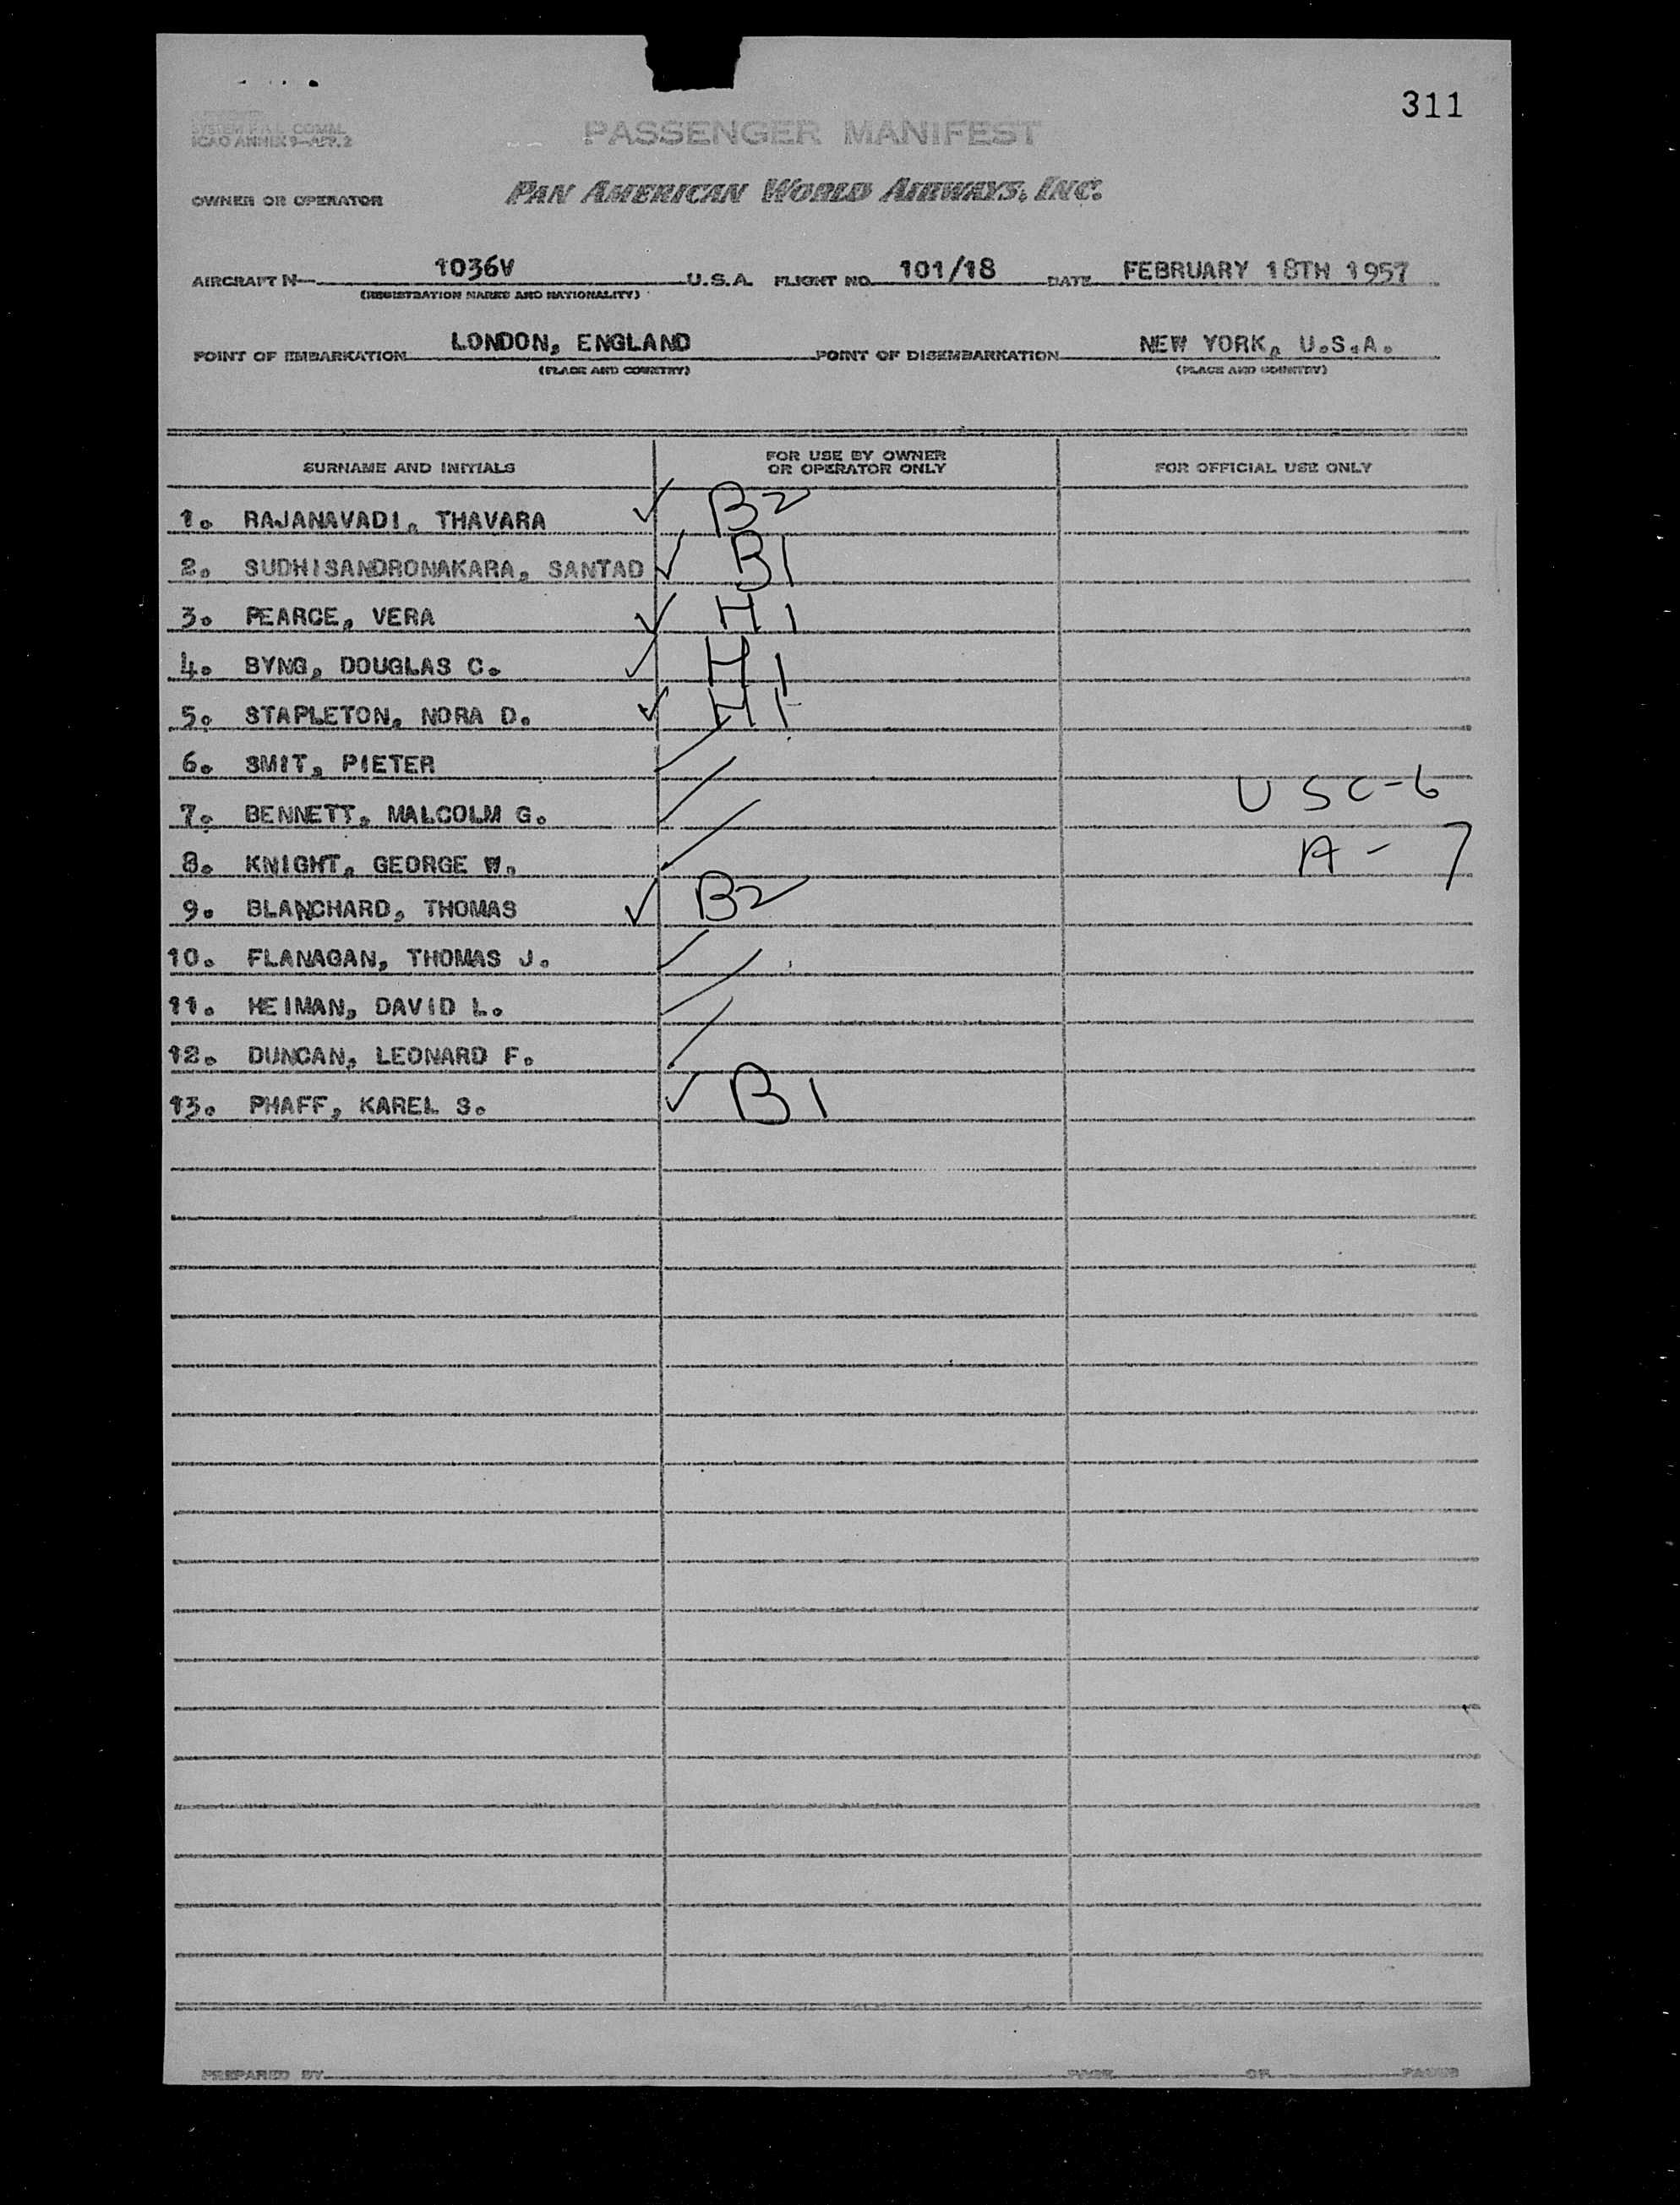 311
SYSTEM P.A.L. COMML.
ICAO ANNEX 9—APP. 2
PASSENGER MANIFEST
OWNER OR OPERATOR
PAN AMERICAN WORLD AIRWAYS, INC.
AIRCRAFT N 1036V U.S.A. FLIGHT NO. 101/18 DATE FEBRUARY 18TH 1957
(REGISTRATION MARKS AND NATIONALITY)
POINT OF EMBARKATION LONDON, ENGLAND POINT OF DISEMBARKATION NEW YORK, U.S.A.
(PLACE AND COUNTRY) (PLACE AND COUNTRY)
SURNAME AND INITIALS FOR USE BY OWNER OR OPERATOR ONLY FOR OFFICIAL USE ONLY
1. RAJANAVADI, THAVARA ✓ B2
2. SUDHISANDRONAKARA, SANTAD ✓ B1
3. PEARCE, VERA ✓ H1
4. BYNG, DOUGLAS C. ✓ H1
5. STAPLETON, NORA D. ✓ H1
6. SMIT, PIETER
7. BENNETT, MALCOLM G. USC-6
8. KNIGHT, GEORGE W. A-7
9. BLANCHARD, THOMAS ✓ B2
10. FLANAGAN, THOMAS J.
11. HEIMAN, DAVID L.
12. DUNCAN, LEONARD F.
13. PHAFF, KAREL S. ✓ B1
PREPARED BY PAGE OF PAGES